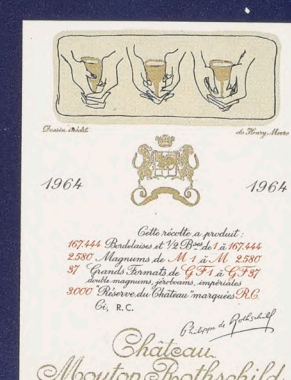 Dessin inédit de Henry Moore
1964 1964
Cette récolte a produit:
167.444 Bordelaises et 1/2 Bses de 1 à 167.444
2.580 Magnums de M 1 à M 2.580
37 Grands Formats de G F 1 à G F 37
double magnums, jéroboams, impériales
3.000 "Réserve du Château" marquées R.C.
Ci, R.C.
Philippe de Rothschild
Château
Mouton Rothschild